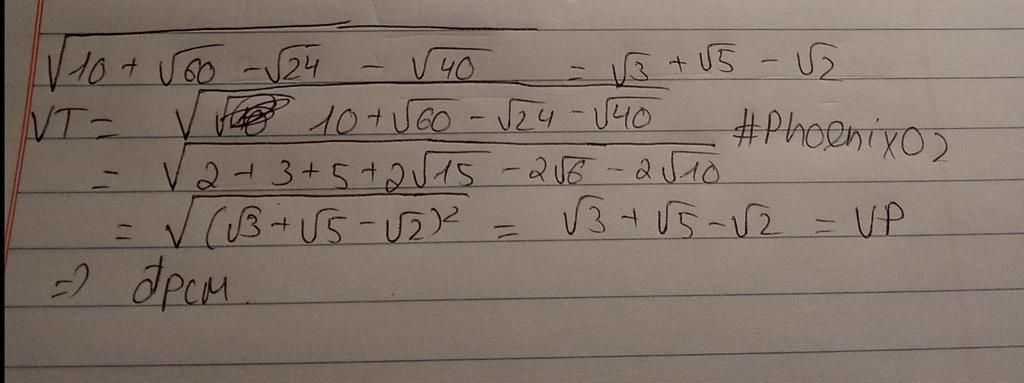 √10 + √60 - √24 - √40 = √3 + √5 - √2
VT = √10 + √60 - √24 - √40 #PhoenixO2
= √2 + 3 + 5 + 2√15 - 2√6 - 2√10
= √(√3 + √5 - √2)² = √3 + √5 - √2 = VP
=> đpcm.